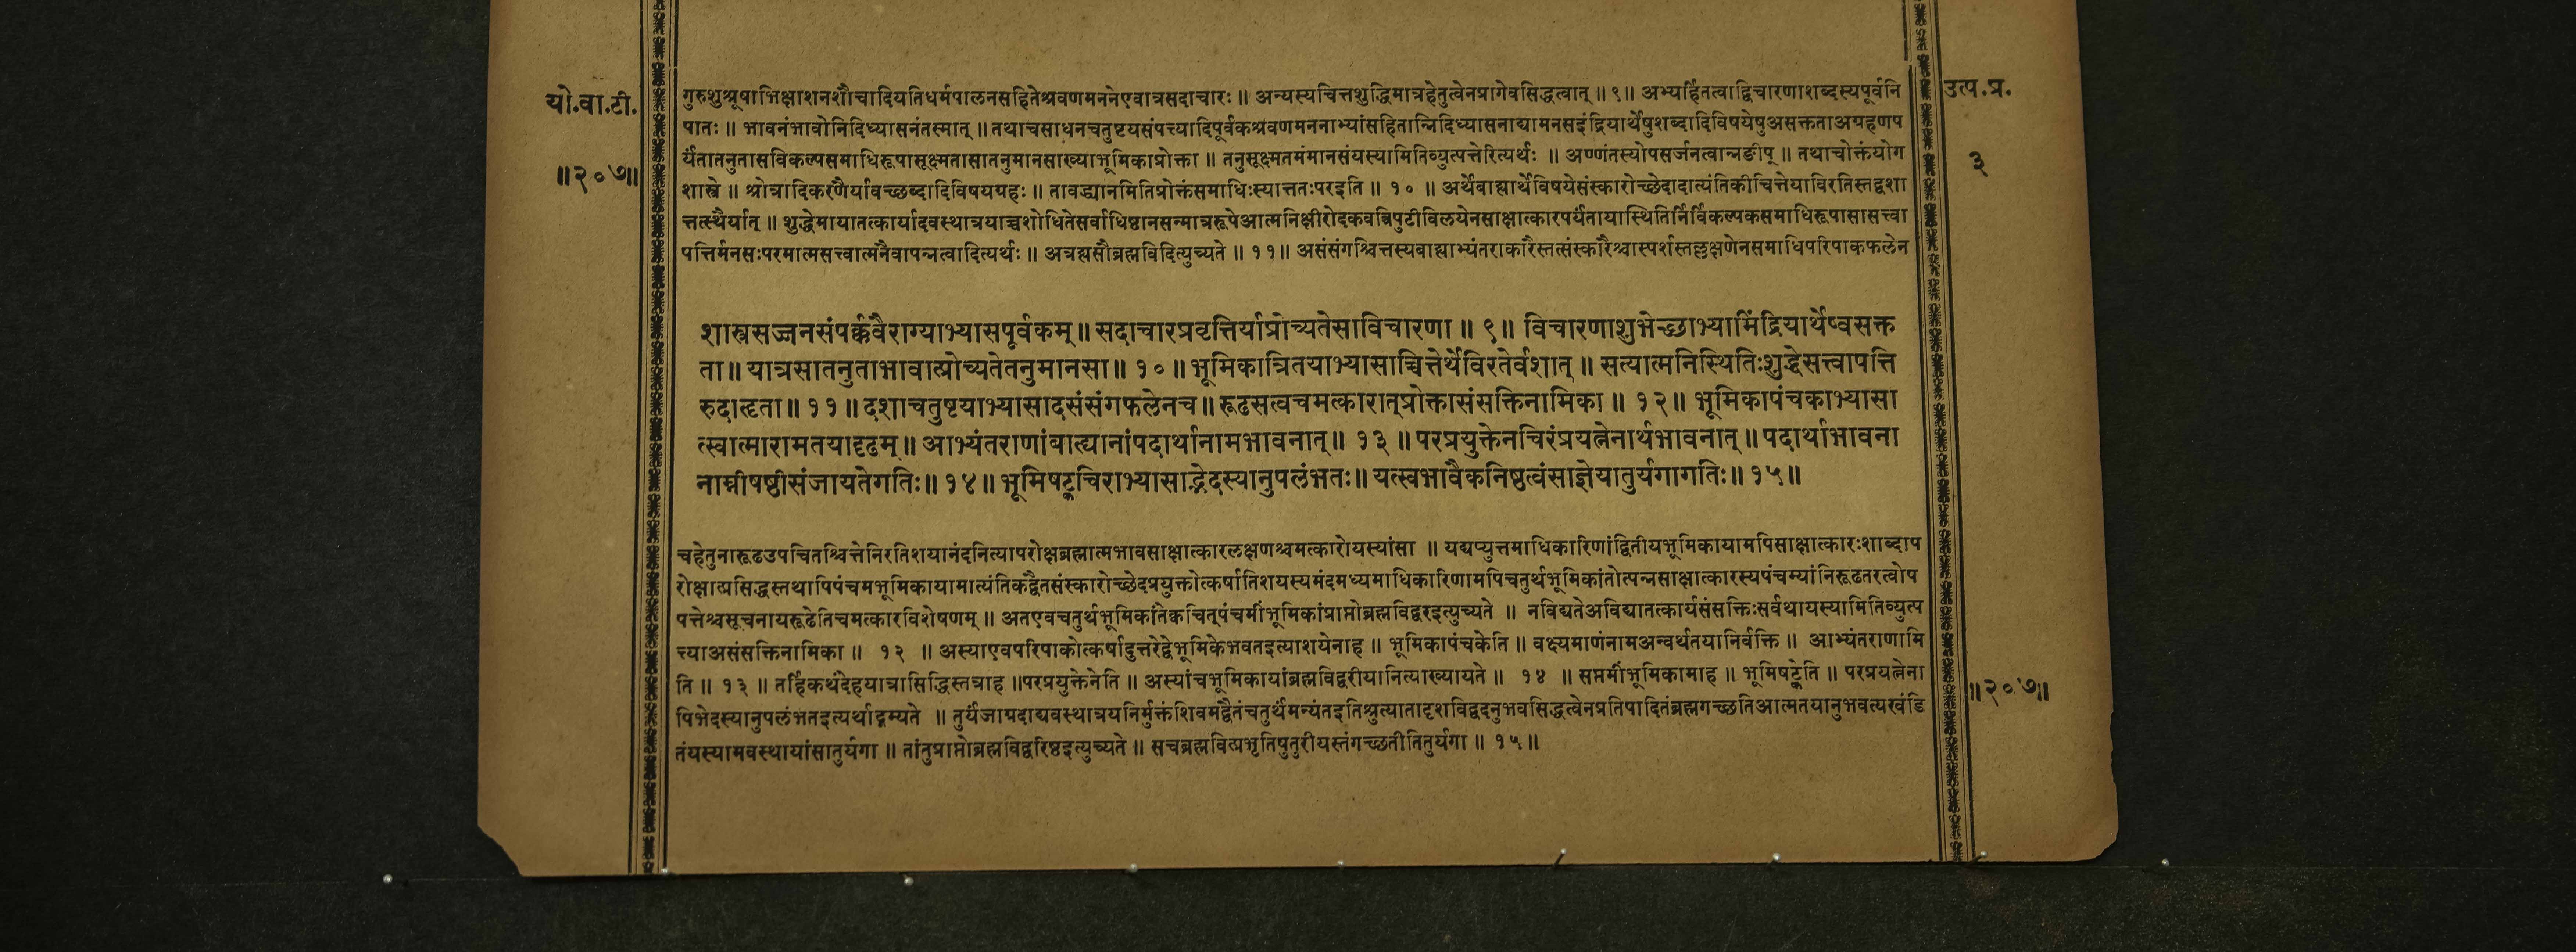 यो.वा.टी.
॥२०७॥
उत्प.प्र.
३
गुरुशुश्रूषाभिक्षाशनशौचादियतिधर्मपालनसहितेश्रवणमननेएवात्रसदाचारः ॥ अन्यस्यचित्तशुद्धिमात्रहेतुत्वेनप्रागेवसिद्धत्वात् ॥ ९॥ अभ्यर्हितत्वाद्विचारणाशब्दस्यपूर्वनि
पातः ॥ भावनंभावोनिदिध्यासनंतस्मात् ॥ तथाचसाधनचतुष्टयसंपत्त्यादिपूर्वकश्रवणमननाभ्यांसहितान्निदिध्यासनाद्यामनसइंद्रियार्थेषुशब्दादिविषयेषुअसक्तताअग्रहणप
र्यंतातनुतासविकल्पसमाधिरूपासूक्ष्मतासातनुमानसाख्याभूमिकाप्रोक्ता ॥ तनुसूक्ष्मतमंमानसंयस्यामितिव्युत्पत्तेरित्यर्थः ॥ अण्णंतस्योपसर्जनत्वान्नङीप् ॥ तथाचोक्तंयोग
शास्त्रे ॥ श्रोत्रादिकरणैर्यावच्छब्दादिविषयग्रहः ॥ तावद्ध्यानमितिप्रोक्तंसमाधिःस्यात्ततःपरइति ॥ १० ॥ अर्थेबाह्यार्थेविषयेसंस्कारोच्छेदादात्यंतिकीचित्तेयाविरतिस्तद्वशा
त्तत्स्थैर्यात् ॥ शुद्धेमायातत्कार्यादवस्थात्रयाच्चशोधितेसर्वाधिष्ठानसन्मात्ररूपेआत्मनिक्षीरोदकवत्रिपुटीविलयेनसाक्षात्कारपर्यंतायास्थितिर्निर्विकल्पकसमाधिरूपासासत्त्वा
पत्तिर्मनसःपरमात्मसत्त्वात्मनैवापन्नत्वादित्यर्थः ॥ अत्रह्यसौब्रह्मविदित्युच्यते ॥ ११॥ असंसंगश्चित्तस्यबाह्याभ्यंतराकारैस्तत्संस्कारैश्चास्पर्शस्तल्लक्षणेनसमाधिपरिपाकफलेन
शास्त्रसज्जनसंपर्क्कवैराग्याभ्यासपूर्वकम्॥ सदाचारप्रवृत्तिर्याप्रोच्यतेसाविचारणा ॥ ९॥ विचारणाशुभेच्छाभ्यामिंद्रियार्थेष्वसक्त
ता॥ यात्रसातनुताभावात्प्रोच्यतेतनुमानसा॥ १०॥ भूमिकात्रितयाभ्यासाच्चित्तेर्थेविरतेर्वशात्॥ सत्यात्मनिस्थितिःशुद्धेसत्त्वापत्ति
रुदाहृता॥ ११॥ दशाचतुष्टयाभ्यासादसंसंगफलेनच॥ रूढसत्वचमत्कारात्प्रोक्तासंसक्तिनामिका॥ १२॥ भूमिकापंचकाभ्यासा
त्स्वात्मारामतयादृढम्॥ आभ्यंतराणांबाह्यानांपदार्थानामभावनात्॥ १३॥ परप्रयुक्तेनचिरंप्रयत्नेनार्थभावनात्॥ पदार्थाभावना
नाम्नीषष्ठीसंजायतेगतिः॥ १४॥ भूमिषट्कचिराभ्यासाद्भेदस्यानुपलंभतः॥ यत्स्वभावैकनिष्ठत्वंसाज्ञेयातुर्यगागतिः॥ १५॥
चहेतुनारूढउपचितश्चित्तेनिरतिशयानंदनित्यापरोक्षब्रह्मात्मभावसाक्षात्कारलक्षणश्चमत्कारोयस्यांसा ॥ यद्यप्युत्तमाधिकारिणांद्वितीयभूमिकायामपिसाक्षात्कारःशाब्दाप
रोक्षात्प्रसिद्धस्तथापिपंचमभूमिकायामात्यंतिकद्वैतसंस्कारोच्छेदप्रयुक्तोत्कर्षातिशयस्यमंदमध्यमाधिकारिणामपिचतुर्थभूमिकांतोत्पन्नसाक्षात्कारस्यपंचम्यांनिरूढतरत्वोप
पत्तेश्चसूचनायरूढेतिचमत्कारविशेषणम् ॥ अतएवचतुर्थभूमिकांतेक्वचित्पंचमींभूमिकांप्राप्तोब्रह्मविद्वरइत्युच्यते ॥ नविद्यतेअविद्यातत्कार्यसंसक्तिःसर्वथायस्यामितिव्युत्प
त्त्याअसंसक्तिनामिका ॥ १२ ॥ अस्याएवपरिपाकोत्कर्षादुत्तरेद्वेभूमिकेभवतइत्याशयेनाह ॥ भूमिकापंचकेति ॥ वक्ष्यमाणंनामअन्वर्थतयानिर्वक्ति ॥ आभ्यंतराणामि
ति ॥ १३ ॥ तर्हिकथंदेहयात्रासिद्धिस्तत्राह ॥परप्रयुक्तेनेति ॥ अस्यांचभूमिकायांब्रह्मविद्वरीयानित्याख्यायते ॥ १४ ॥ सप्तमींभूमिकामाह ॥ भूमिषट्केति ॥ परप्रयत्नेना
पिभेदस्यानुपलंभतइत्यर्थाद्गम्यते ॥ तुर्यंजाग्रदाद्यवस्थात्रयनिर्मुक्तंशिवमद्वैतंचतुर्थंमन्यंतइतिश्रुत्यातादृशविद्वदनुभवसिद्धत्वेनप्रतिपादितंब्रह्मगच्छतिआत्मतयानुभवत्यखंडि
तंयस्यामवस्थायांसातुर्यगा ॥ तांतुप्राप्तोब्रह्मविद्वरिष्ठइत्युच्यते ॥ सचब्रह्मवित्प्रभृतिषुतुरीयस्तंगच्छतीतितुर्यगा ॥ १५॥
॥२०७॥